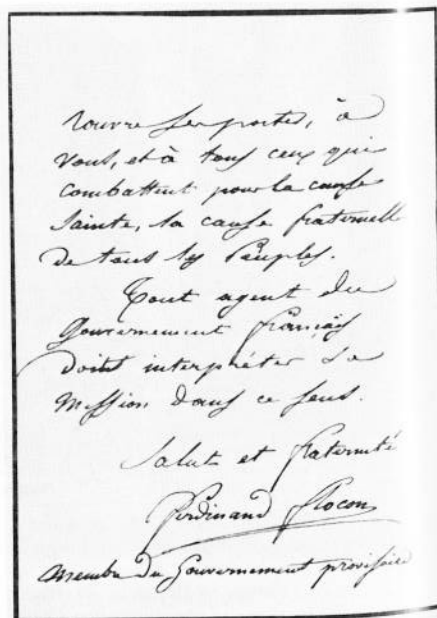 rouvre ses portes, à
vous, et à tous ceux qui
combattent pour la cause
sainte, la cause fraternelle
de tous les Peuples.
Tout agent du
Gouvernement français
doit interpréter sa
mission dans ce sens.
Salut et fraternité
Ferdinand Flocon
membre du Gouvernement provisoire